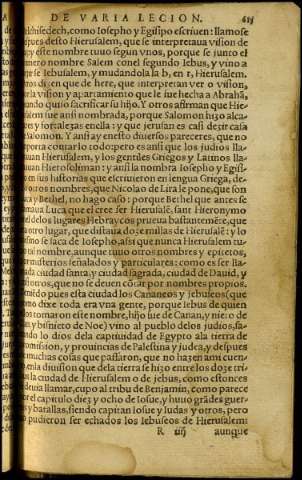 DE VARIA LECION. 615
lchisedech, como Iosepho y Egisipo escriuen: llamose
despues desto Hierusalem, que se interpretaua vision de
y este nombre tuuo segun vnos, porque se junto el
mero nombre Salem con el segundo Iebus, y vino a
se Iebusalem, y mudando la b, en r, Hierusalem.
tros dizen que de here, que interpretan ver o vision,
la vision y aparicimiento que le fue hecha a Abrahã,
ndo quiso sacrificar su hijo. Y otros affirman que Hie-
lem fue ansi nombrada, porque Salomon hizo alca-
res y fortalezas en ella: y que jerusan es casi dezir casa
Salomon. Y ansi ay en esto diuersos paresceres, que no
porta contarlo todo: pero es ansi que los judios lla-
uan Hierusalem, y los gentiles Griegos y Latinos lla-
uan Hierosoliman: y ansi la nombra Iosepho y Egisi-
en sus historias que escriuieron en lengua Griega, de-
otros nombres, que Nicolao de Lira le pone, que son
a y Bethel, no hago caso: porque Bethel que antes se
maua Luca que el cree ser Hierusalẽ, sant Hieronymo
los lugares Hebraycos prueua bastantemẽte, que
otro lugar, que distaua doze millas de Hierusalẽ: y lo
smo se saca de Iosepho, assi que nunca Hierusalem tu-
tal nombre, aunque tuuo otros nombres y epitetos,
mudferios señalados y particulares: como es ser lla-
ada ciudad santa, y ciudad sagrada, ciudad de Dauid, y
otros, que no se deuen cõtar por nombres propios.
endo pues esta ciudad los Cananeos y jebuseos (que
mo dixe toda era vna gente, porque Iebus de quien
los tomaron este nombre, hijo fue de Canan, y nieto de
n y bisnieto de Noe) vino al pueblo de los judios, sa-
ndo lo dios dela captiuidad de Egypto ala tierra de
omission, y prouincias de Palestina y judea, y despues
muchas cosas que passaron, que no hazen ami cuen-
en la diuision que dela tierra se hizo entre los doze tri-
la ciudad de Hierusalem o de jebus, como estonces
deuia llamar, cupo al tribu de Benjamin, como parece
el capitulo diez y ocho de Iosue, y huuo grãdes guer-
y barallas, siendo capitan Iosue y Iudas y otros, pero
pudieron ser echados los Iebuseos de Hierusalem:
R iiij aunque